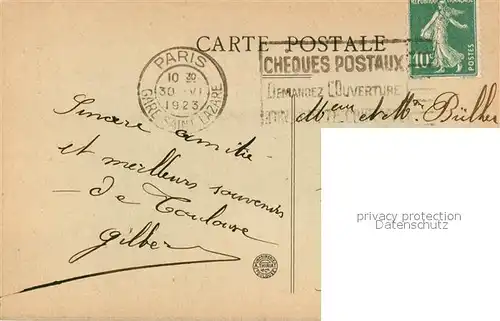 CARTE POSTALE
PARIS
10 30
30 VI
1923
GARE SAINT LAZARE
CHEQUES POSTAUX
DEMANDEZ L'OUVERTURE
10c
POSTES
et Mr Bülher
Sincère amitié
et meilleurs souvenirs
de Toulouse
Gilber
privacy protection
Datenschutz